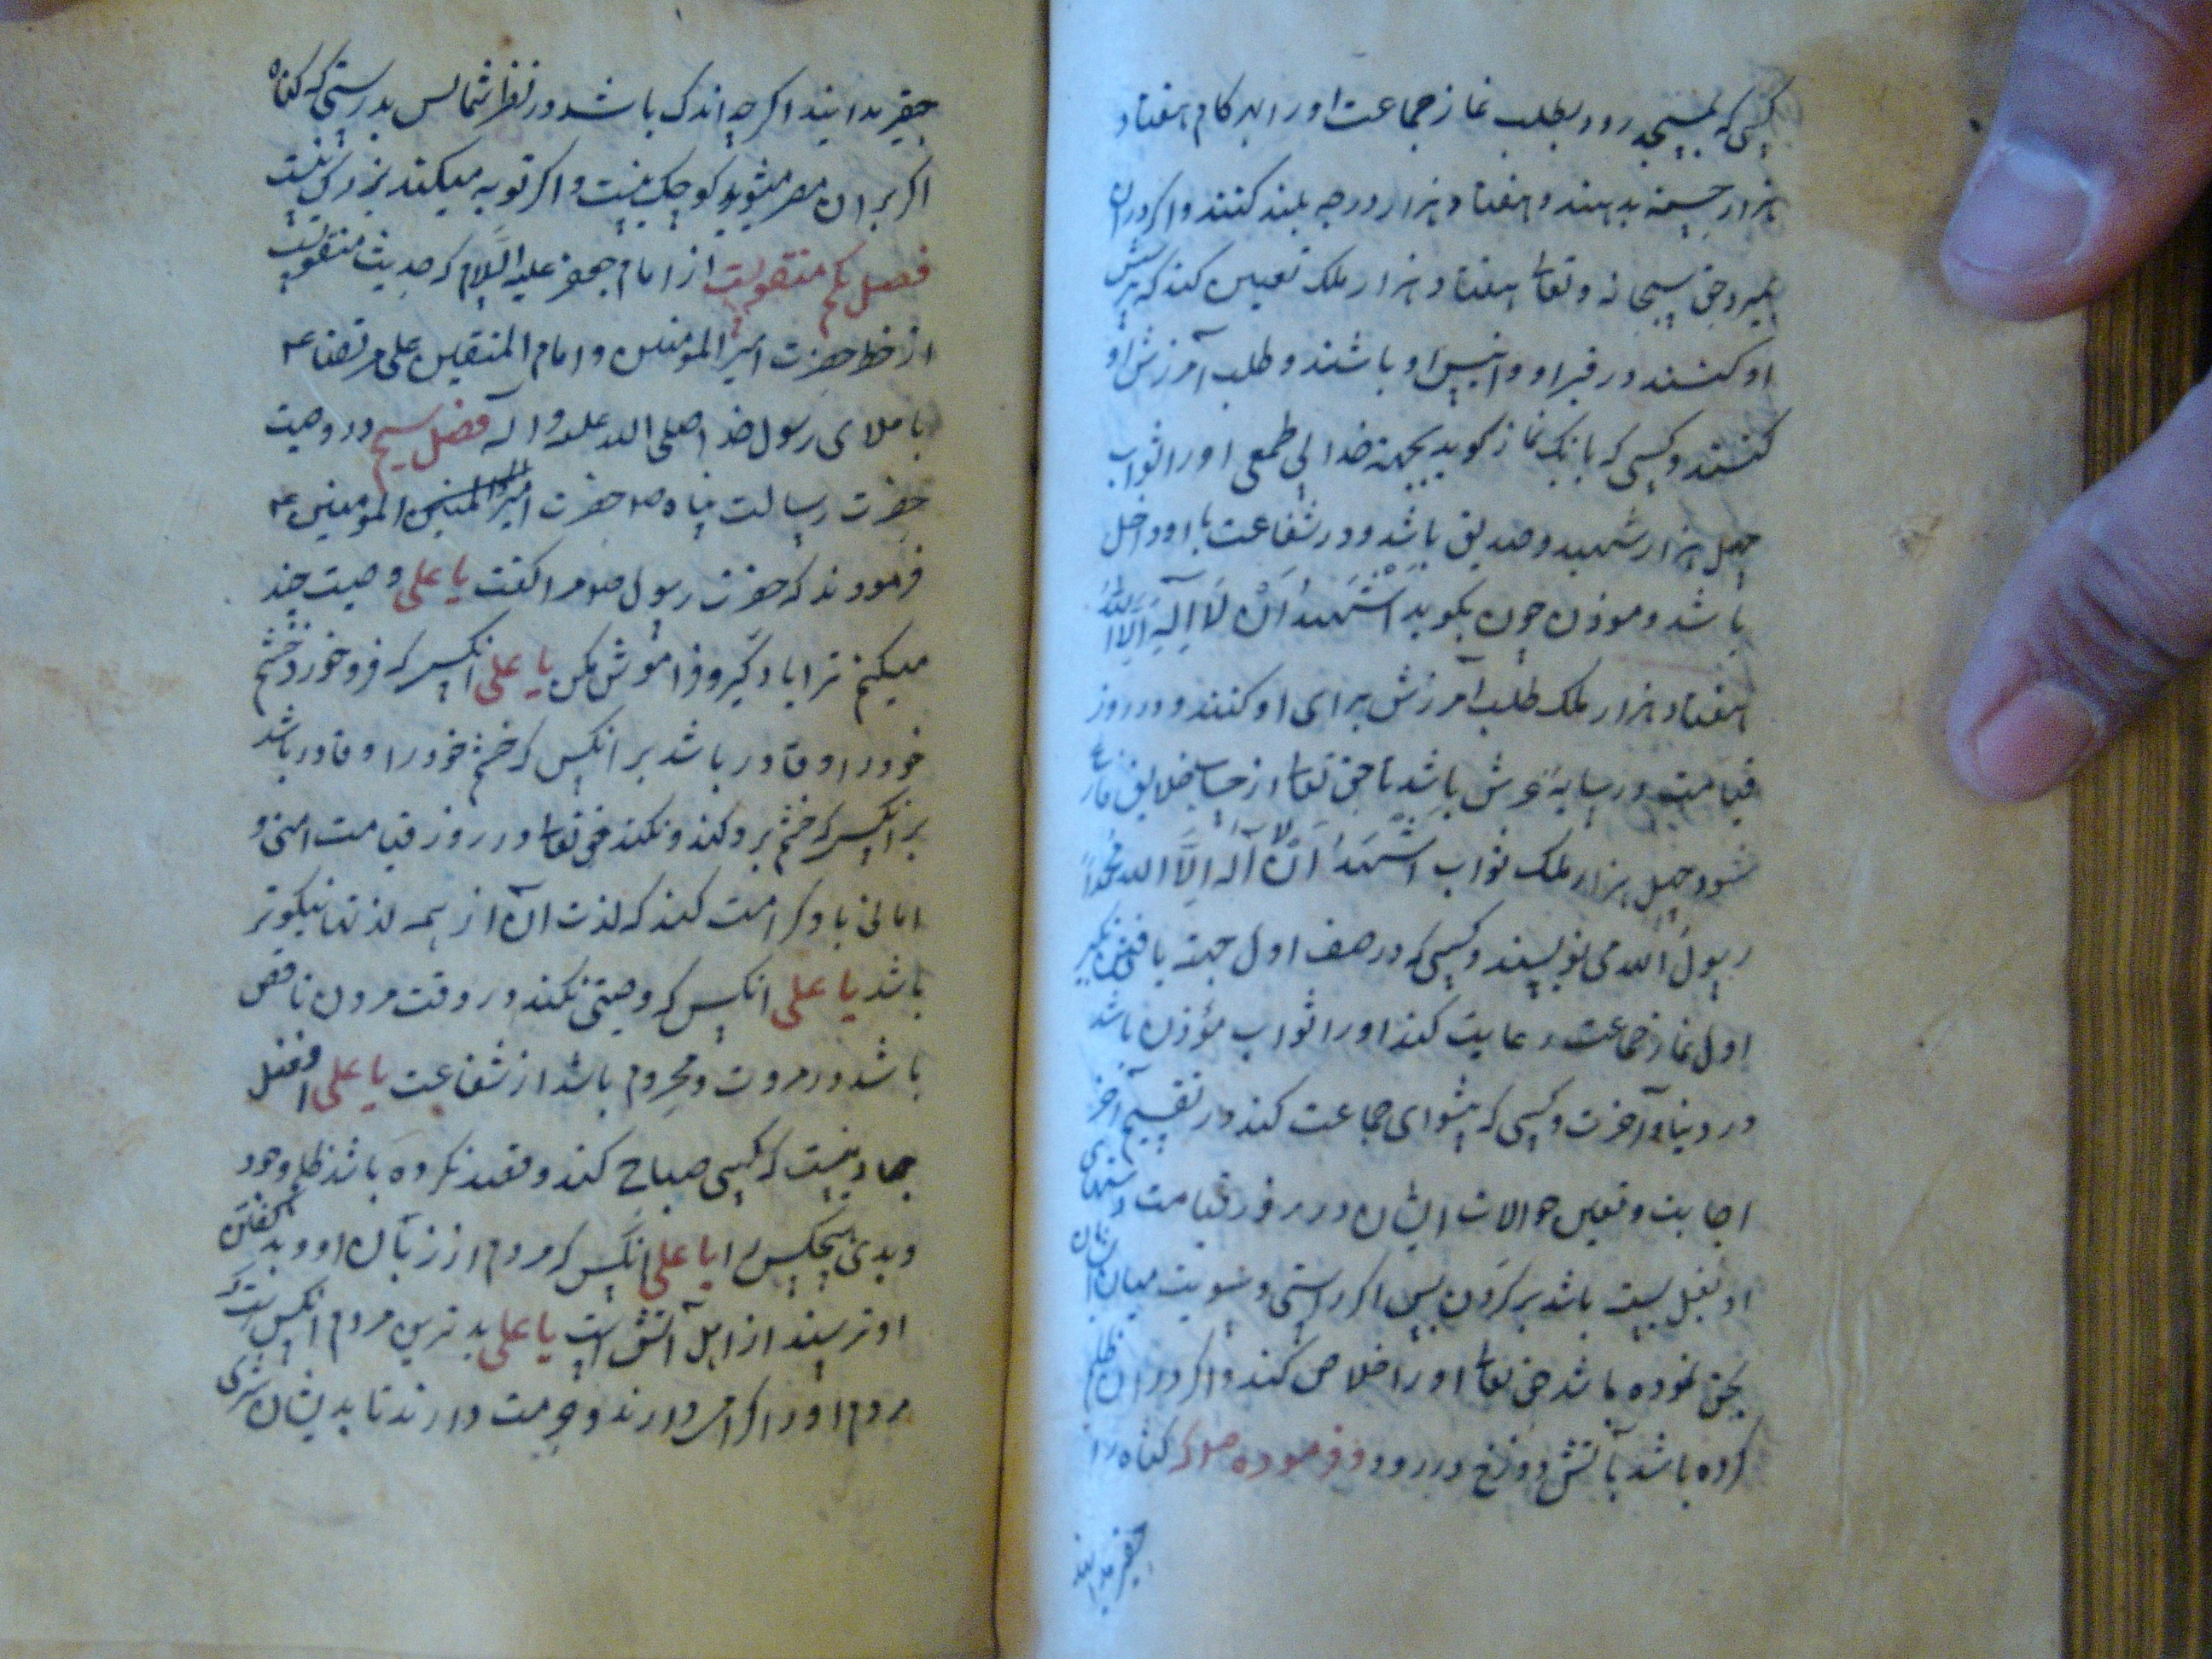 کسی که بمسجد رود بطلب نماز جماعت اورا بهر کام هفتاد
هزار حسنه بدهند و هفتاد هزار درجه بلند کنند و اکر دران
بمیرد حق سبحانه و تعالی هفتاد هزار ملک تعیین کند که پرسش
او کنند در قبر او و انیس او باشند و طلب آمرزش او
کنند و کسی که بانک نماز کوید بجهة خدا بی طمعی اورا ثواب
چهل هزار شهید و صدیق باشد و در شفاعت با او داخل
باشد و موذن چون بکوید اَشْهَدُ اَنْ لَا اِلَهَ اِلَّا اللهُ
هفتاد هزار ملک طلب آمرزش برای او کنند و در روز
قیامت در سایهٔ عرش باشد تا حق تعالی از حساب خلایق فارغ
شود و چهل هزار ملک ثواب اَشْهَدُ اَنْ لا آله اِلَّا الله محمداً
رسولُ الله می نویسند و کسی که در صف اول جهة یافتن تکبیر
اول نماز جماعت رعایت کند اورا ثواب مؤذن باشد
در دنیا و آخرت و کسی که پیشوای جماعت کند در تقسیم آخر
اجابت و تعیین حوالات ایشان در روز قیامت دستهای
او بغل بسته باشد بر کردن پس اکر راستی و سویت میان ایشان
بحق نموده باشد حق تعالی اورا خلاص کند و اکر در ان ظلم
کرده باشد بآتش دوزخ در رود و فرموده صلعم که کناه را
حقیر مدانید
حقیر مدانید اکر چه اندک باشد در نظر شما پس بدرستی که کناه
اکر بر ان مصر میشوید کوچک نیست و اکر توبه میکنید بزرک نیست
فصل یکم منقولست از امام جعفر علیه السلام که حدیث منقولست
از خط حضرت امیر المومنین و امام المتقین علی مرتضی ع
باملای رسول خدا صلی الله علیه و اله فصل سیم در وصیت
حضرت رسالت پناه ص حضرت امیر المومنین ع
فرمودند که حضرت رسول ص مرا کفت یا علی وصیت چند
میکنم ترا یاد کیر و فراموش مکن یا علی انکس که فرو خورد خشم
خود را و قادر باشد بر انکس که خشم خود را و قادر باشد
بر انکس که خشم برو کند و نکند حق تعالی در روز قیامت امنی و
امانی باو کرامت کند که لذت ان از همه لذتها نیکوتر
باشد یا علی انکس که وصیتی نکند در وقت مردن ناقص
باشد در مروت و محروم باشد از شفاعت یا علی افضل
جهاد نیست که کسی صباح کند و قصد نکرده باشد ظلم و جور
و بدی هیچکس را یا علی انکس که مردم از زبان او و بد کفتن
او ترسند از اهل آتش است یا علی بدترین مردم انکس است که
مردم اورا اکرام دارند و حرمت دارند تا بدیشان شری